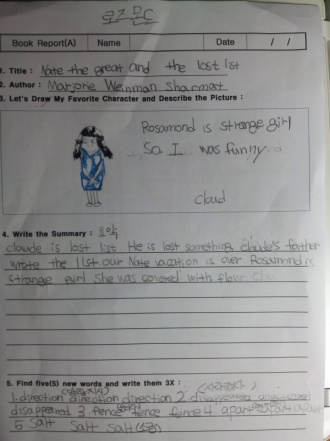 로즈몬드
Book Report(A) Name Date / /
1. Title : Nate the great and the lost list
2. Author : Marjorie Weinman Sharmat
3. Let's Draw My Favorite Character and Describe the Picture :
Rosamond is strange girl
So I was funny
cloud
4. Write the Summary : 요약
claude is lost list He is lost something father
wrote the list our Nate vacation is over Rosamond is
strange girl She was covered with flour
5. Find five(5) new words and write them 3X :
1. direction direction direction 2. disappeared
disappeared 3 fence fence fence 4 apart apart apart
5 salt salt salt